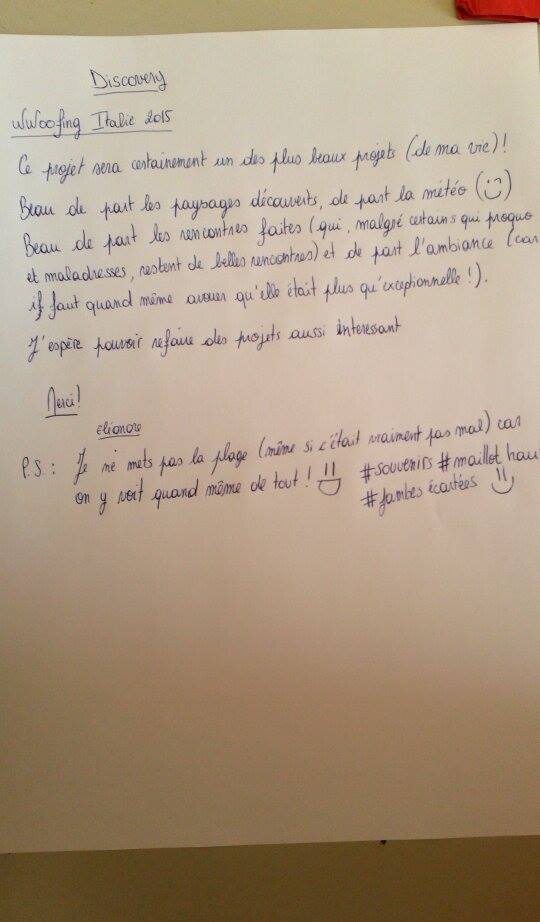 Discovery
WWoofing Italie 2015
Ce projet sera certainement un des plus beaux projets (de ma vie)!
Beau de part les paysages découverts, de part la météo (:))
Beau de part les rencontres faites (qui, malgré certains qui proquo
et maladresses, restent de belles rencontres) et de part l'ambiance (car
il faut quand même avouer qu'elle était plus qu'exceptionnelle!).
J'espère pouvoir refaire des projets aussi interessant
Merci!
elionore
P.S.: Je ne mets pas la plage (même si c'était vraiment pas mal) car
on y voit quand même de tout! :) #souvenirs #maillot hau
#Jambes écartées :)